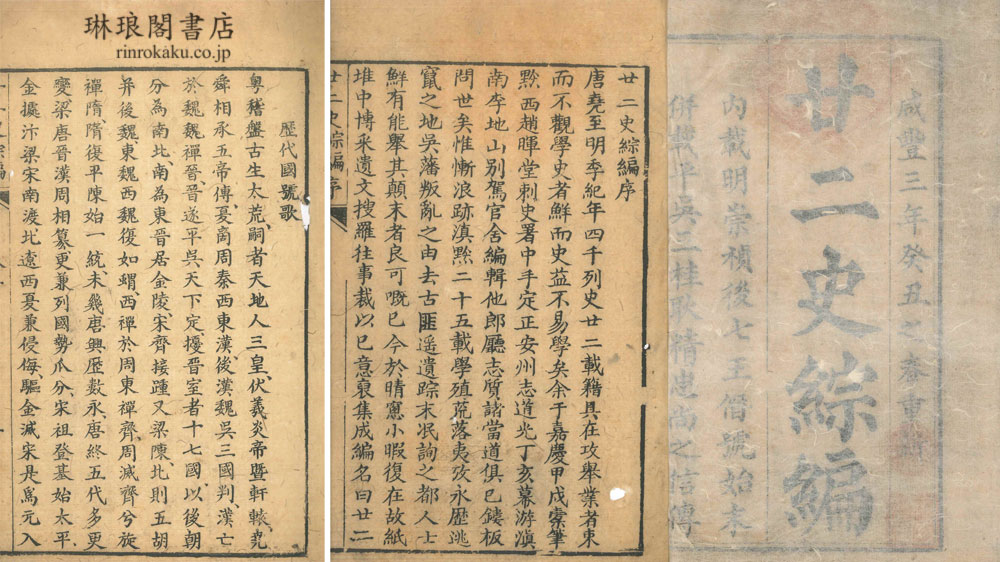 琳琅閣書店
rinrokaku.co.jp
咸豐三年癸丑之春重
廿二史綜編
內載明崇禎後七王僭號始末
併載平吳三桂耿精忠尚之信傳
廿二史綜編序
唐堯至明季紀年四千列史廿二載籍具在攻舉業者東
而不觀學史者鮮而史益不易學矣余于嘉慶甲戌橐筆
黔西趙暉堂刺史署中手定正安州志道光丁亥幕游滇
南李地山別駕官舍編輯他郎廳志質諸當道俱已鏤板
問世矣惟慚浪跡滇黔二十五載學殖荒落夷攷永歷逃
竄之地吳藩叛亂之由去古匪遥遺踪未泯詢之都人士
鮮有能舉其顛末者良可嘅已今於晴窻小暇復在故紙
堆中博采遺文搜羅往事裁以己意裒集成編名曰廿二
廿二史綜編序
歷代國號歌
粤稽盤古生太荒、嗣者天地人三皇、伏羲炎帝暨軒轅、堯
舜相承五帝傳、夏商周秦西東漢、後漢魏吳三國判、漢亡
於魏魏禪晉、晉遂平吳天下定、擾晉室者十七國、以後朝
分為南北、南為東晉居金陵、宋齊接踵又梁陳、北則五胡
并後魏、東魏西魏復如蜩、西禪於周東禪齊、周滅齊兮旋
禪隋、隋復平陳始一統、未幾唐興歷数永、唐終五代多更
變、梁唐晉漢周相篡、更兼列國勢瓜分、宋祖登基始太平、
金據汴梁宋南渡、北遼西夏兼侵侮、驅金滅宋是爲元、入